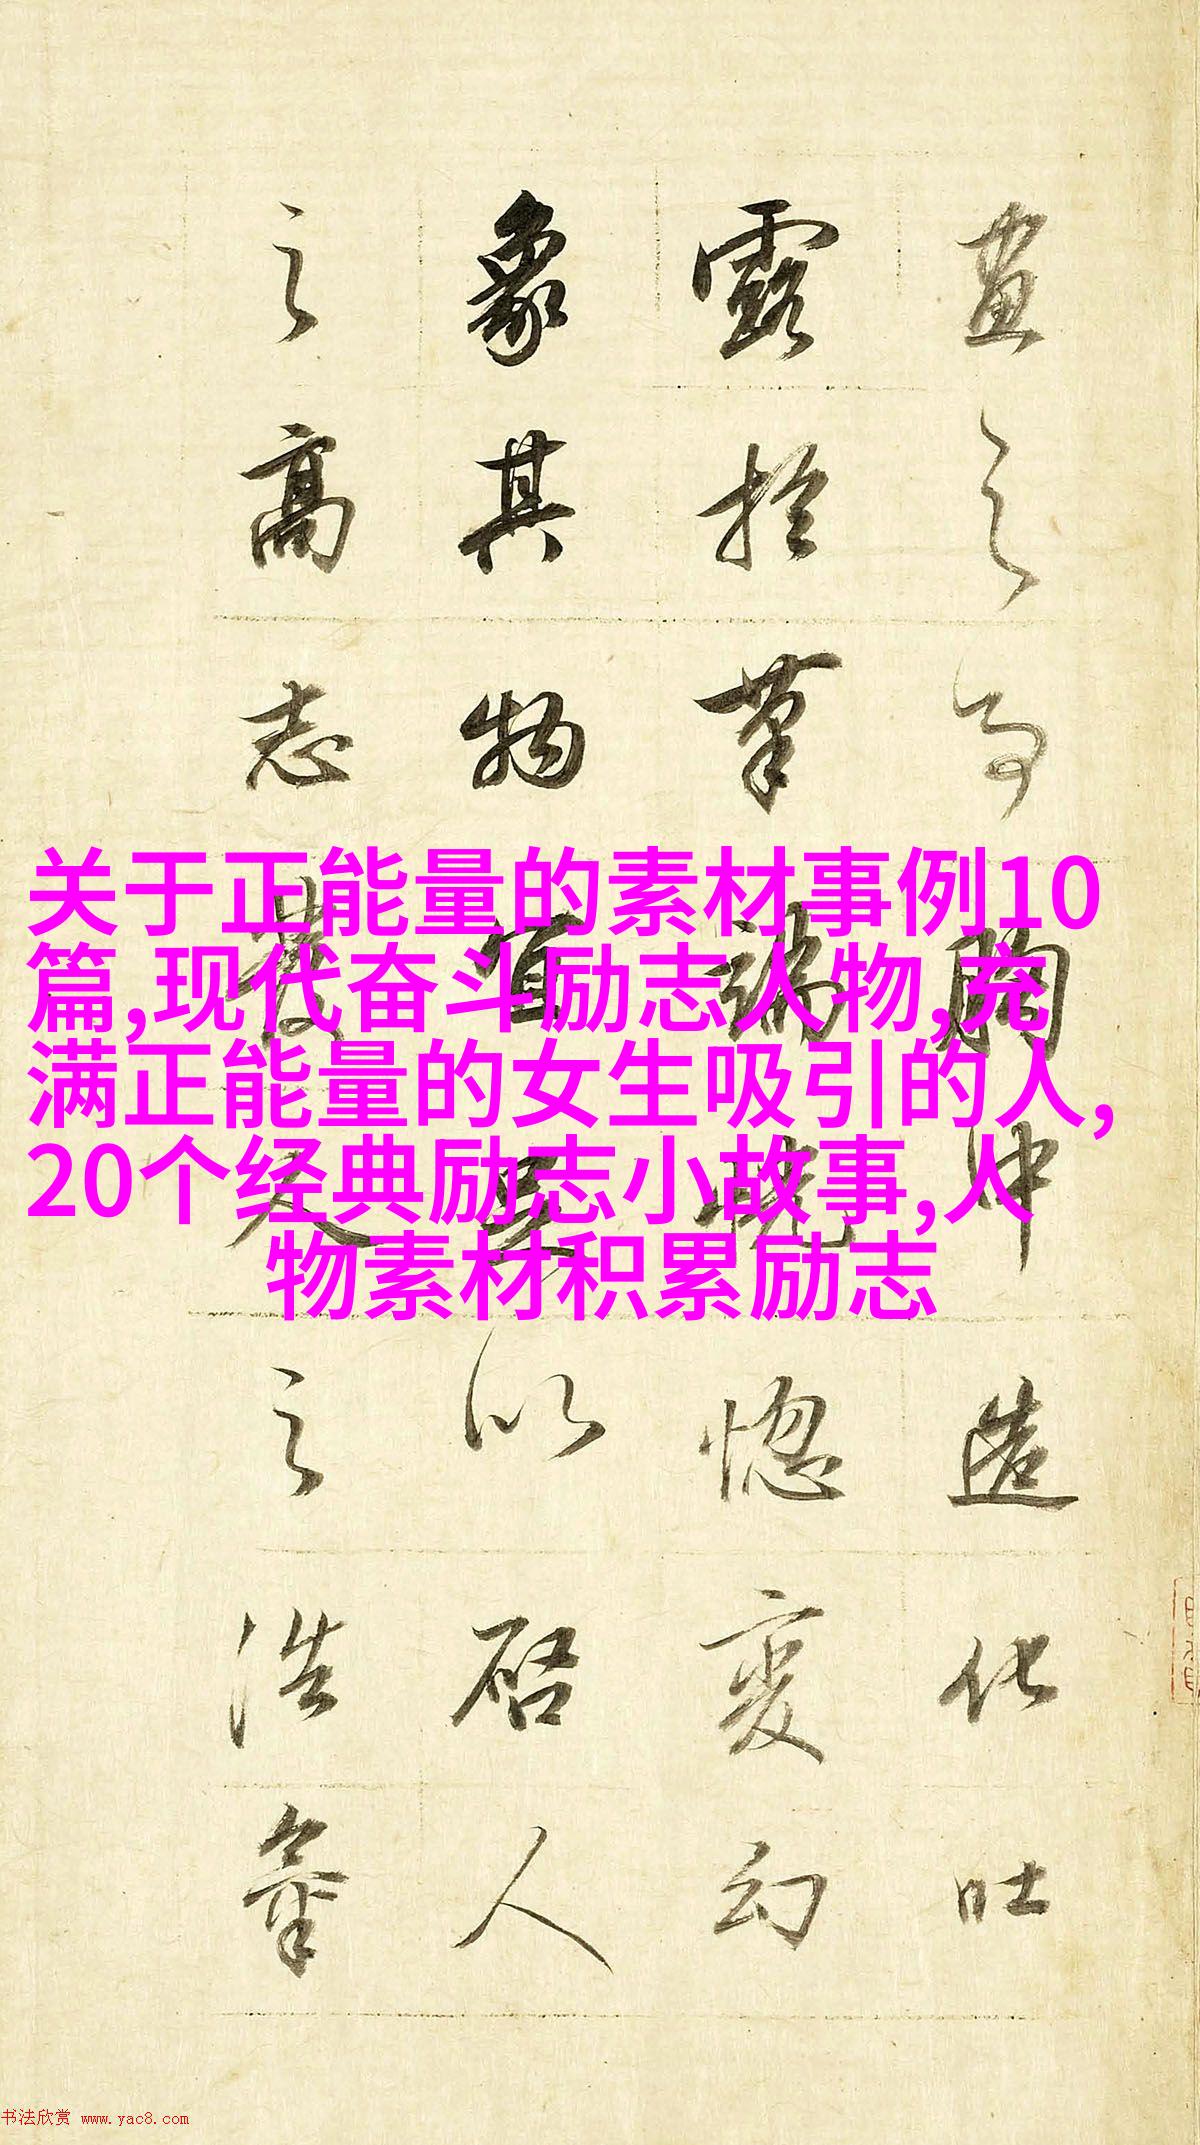 畫之胸中造化吐
露於筆端恍惚變幻
象其物宜足以啓人
之高志發人之浩氣
关于正能量的素材事例10
篇,现代奋斗励志人物,充
满正能量的女生吸引的人,
20个经典励志小故事,人
物素材积累励志
书法欣赏 www.yac8.com